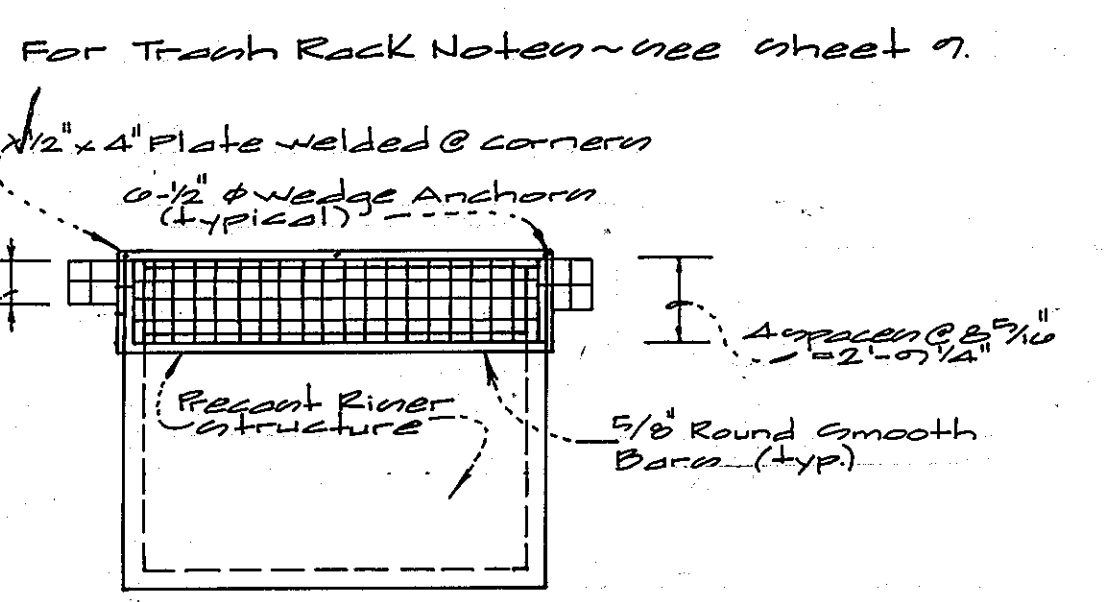 For Trash Rack Notes ~ see sheet 9.
x 1/2" x 4" Plate welded @ corners
6-1/2" ⌀ Wedge Anchors
(typical)
4 spaces @ 8 5/16"
=2'-9 1/4"
Precast Riser
structure
5/8" Round Smooth
Bars (typ.)